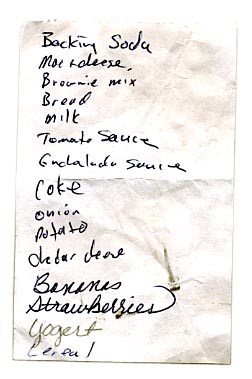 Backing Soda
Mac ncheese
Brownie mix
Bread
milk
Tomato Sauce
Enchalada Saurce
Coke
onion
potato
chedar chese
Bananas
Strawberries
Yogert
Cereal